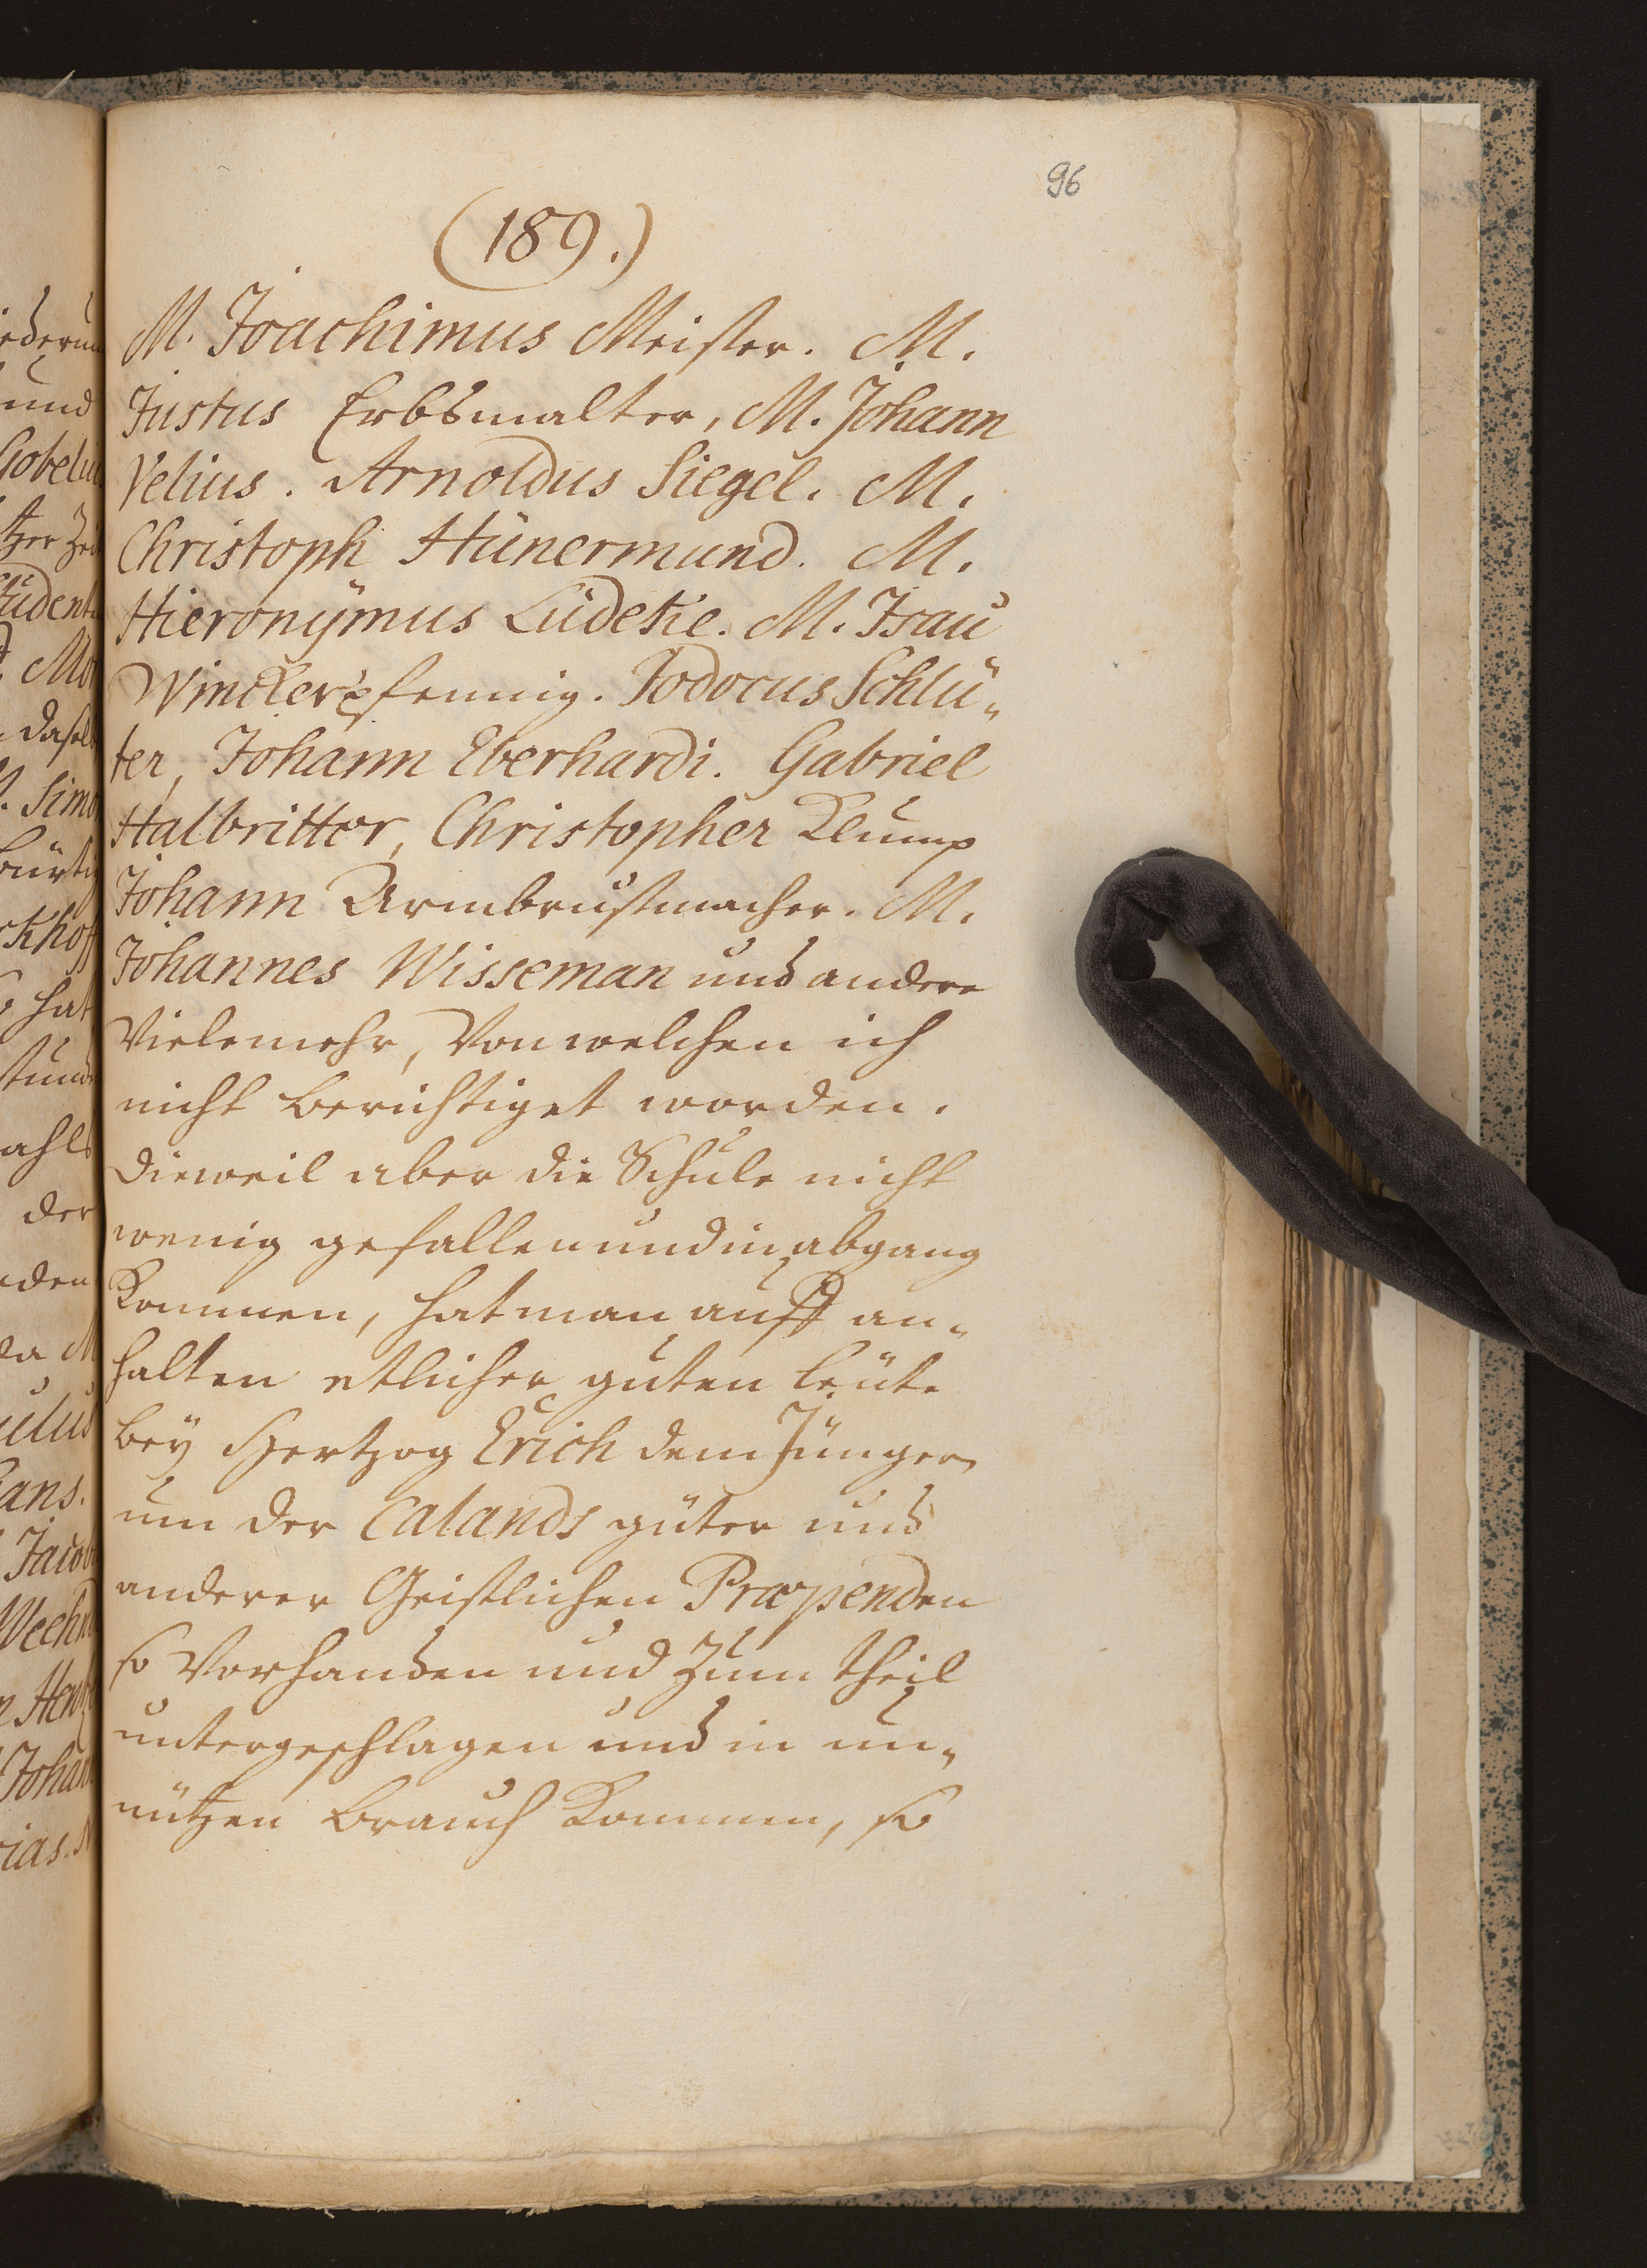 96
(189.)
M. Joachimus Meister. M.
Justus Erbsmalter, M. Johann
Velius. Arnoldus Siegel. M.
Christoph Hünermund. M.
Hieronÿmus Lüdeke. M. Isau
Winckerpfennig. Jodocus Schlü„
ter, Johann Eberhardi. Gabriel
Halbritter, Christopher Klump
Johann Armbrustmacher. M.
Johannes Wisseman und andere
Vielemehr, Von welchen ich
nicht berichtiget worden.
Dieweil aber die Schule nicht
wenig gefallen und in abgang
Kommen, hat man auff an„
halten etlicher guten leüte
beÿ Hertzog Erich dem Jüngern
um der Calands güter und
anderer Geistlichen Præpenden
so Vorhanden und Zum theil
untergeschlagen und in un„
nützen brauch Kommen, so